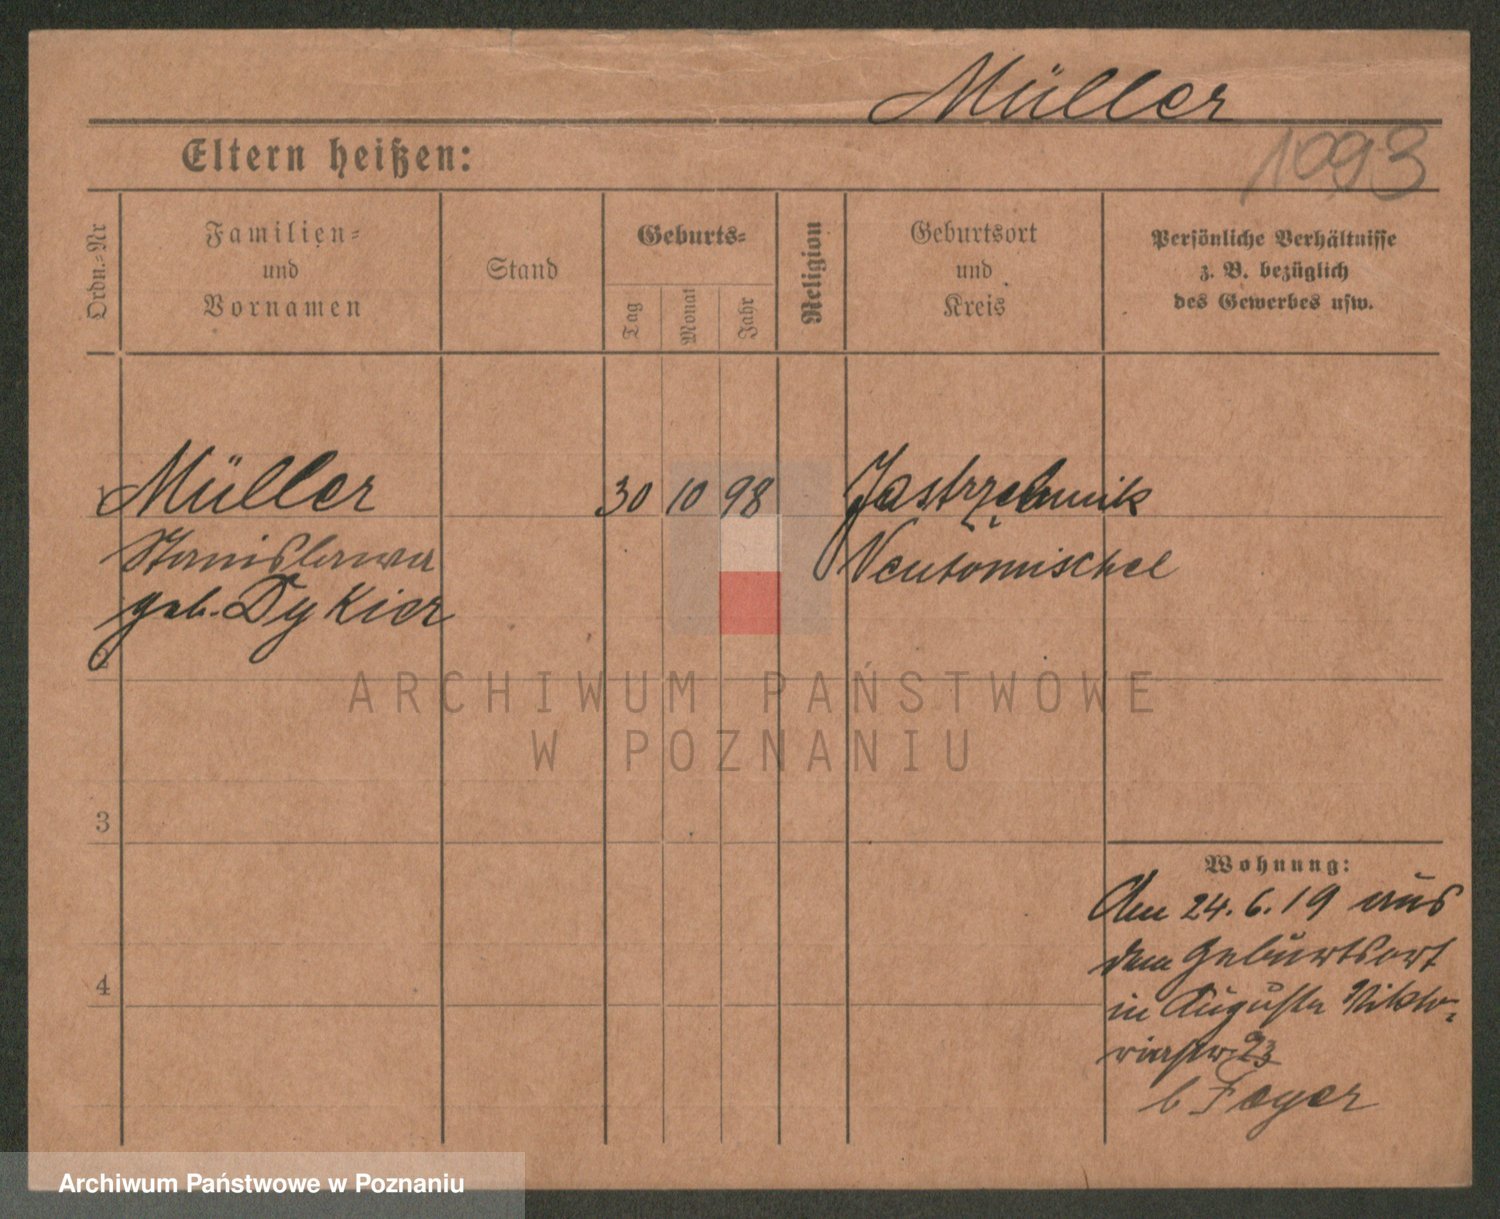 Müller
Eltern heißen:
1093
Ordn.-Nr
Familien-
und
Vornamen
Stand
Geburts-
Tag
Monat
Jahr
Religion
Geburtsort
und
Kreis
Persönliche Verhältnisse
z. B. bezüglich
des Gewerbes usw.
1 Müller 30 10 98 Jastrzebnik
Stanislawa Neutomischel
geb. Dykier
2
ARCHIWUM PAŃSTWOWE
W POZNANIU
3
Wohnung:
Am 24.6.19 aus
dem Geburtsort
in Augusta Vikto-
riastr 23
b
4
Archiwum Państwowe w Poznaniu